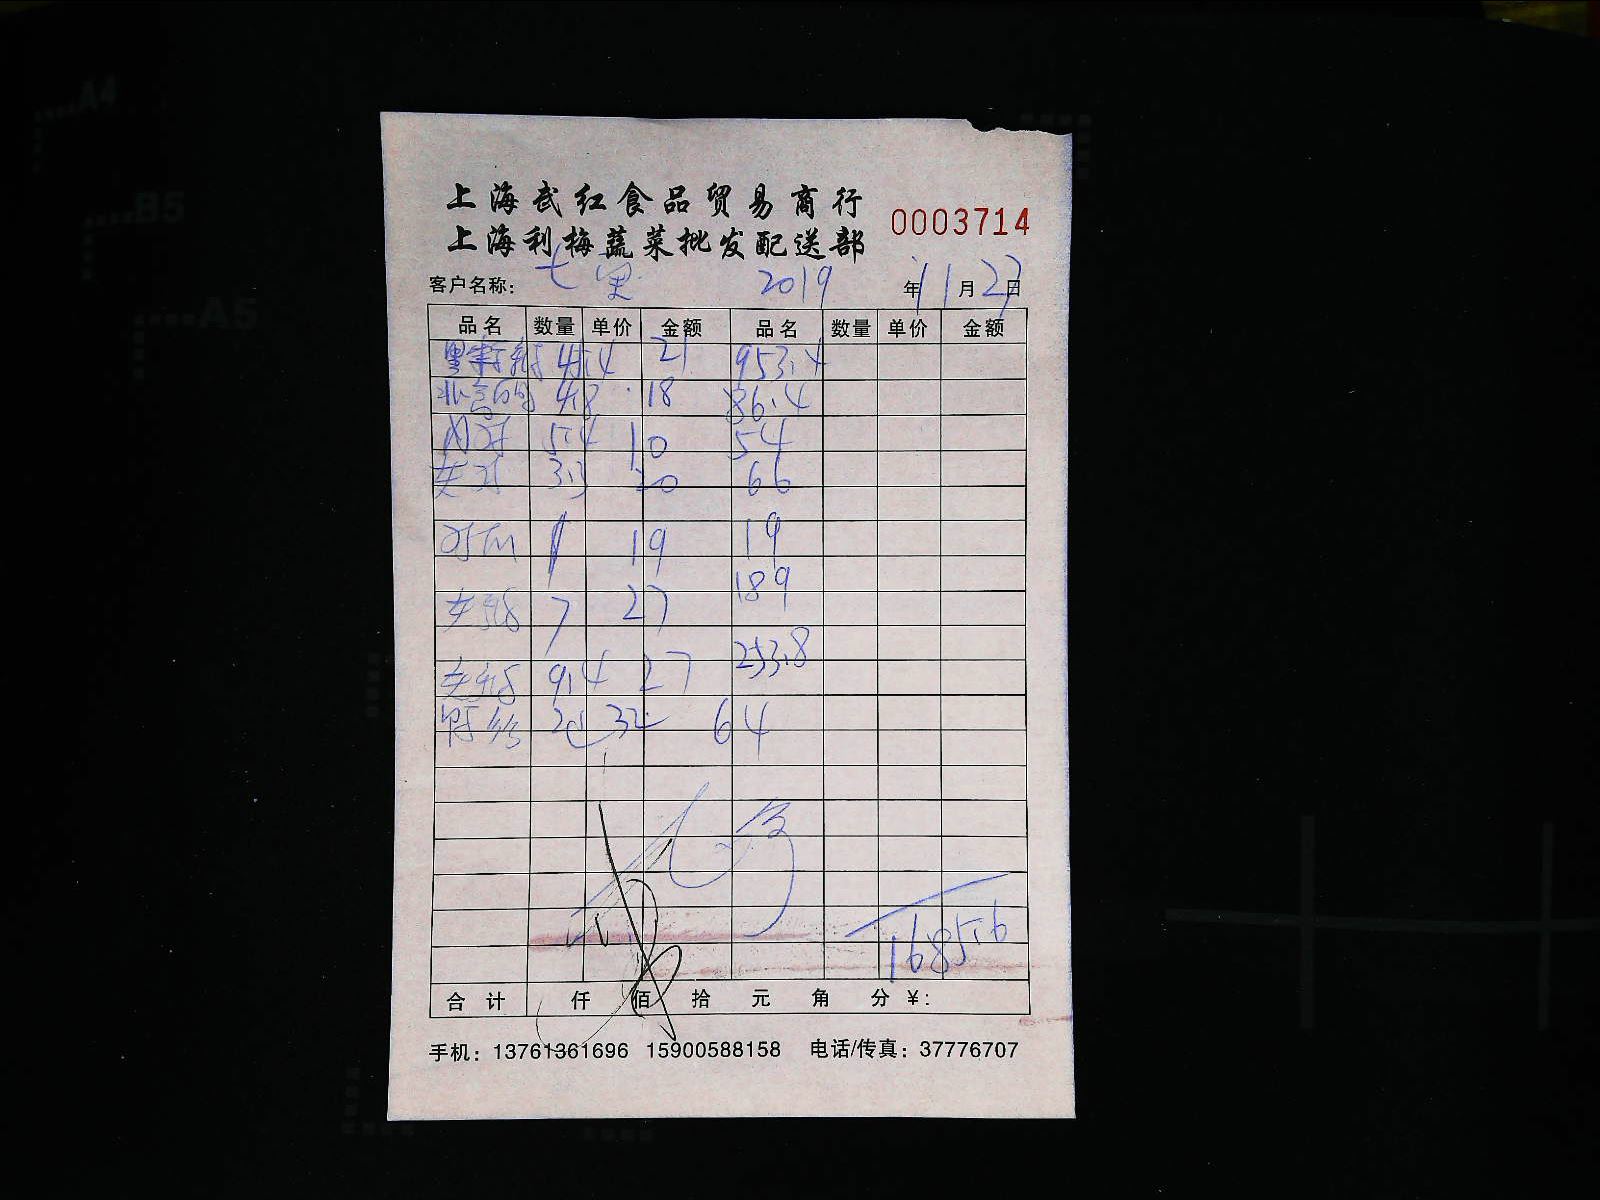 上海武红食品贸易商行
0003714
上海利梅蔬菜批发配送部
客户名称： 七里 2019 年 11 月 27 日
品名 数量 单价 金额 品名 数量 单价 金额
45.4 21 953.4
4.8 18 86.4
5.4 10 54
3.3 20 66
1 19 19
7 27 189
9.4 27 253.8
2 32 64
1685.6
合计 仟 佰 拾 元 角 分 ¥:
手机：13761361696 15900588158 电话/传真：37776707
A4
B5
A5